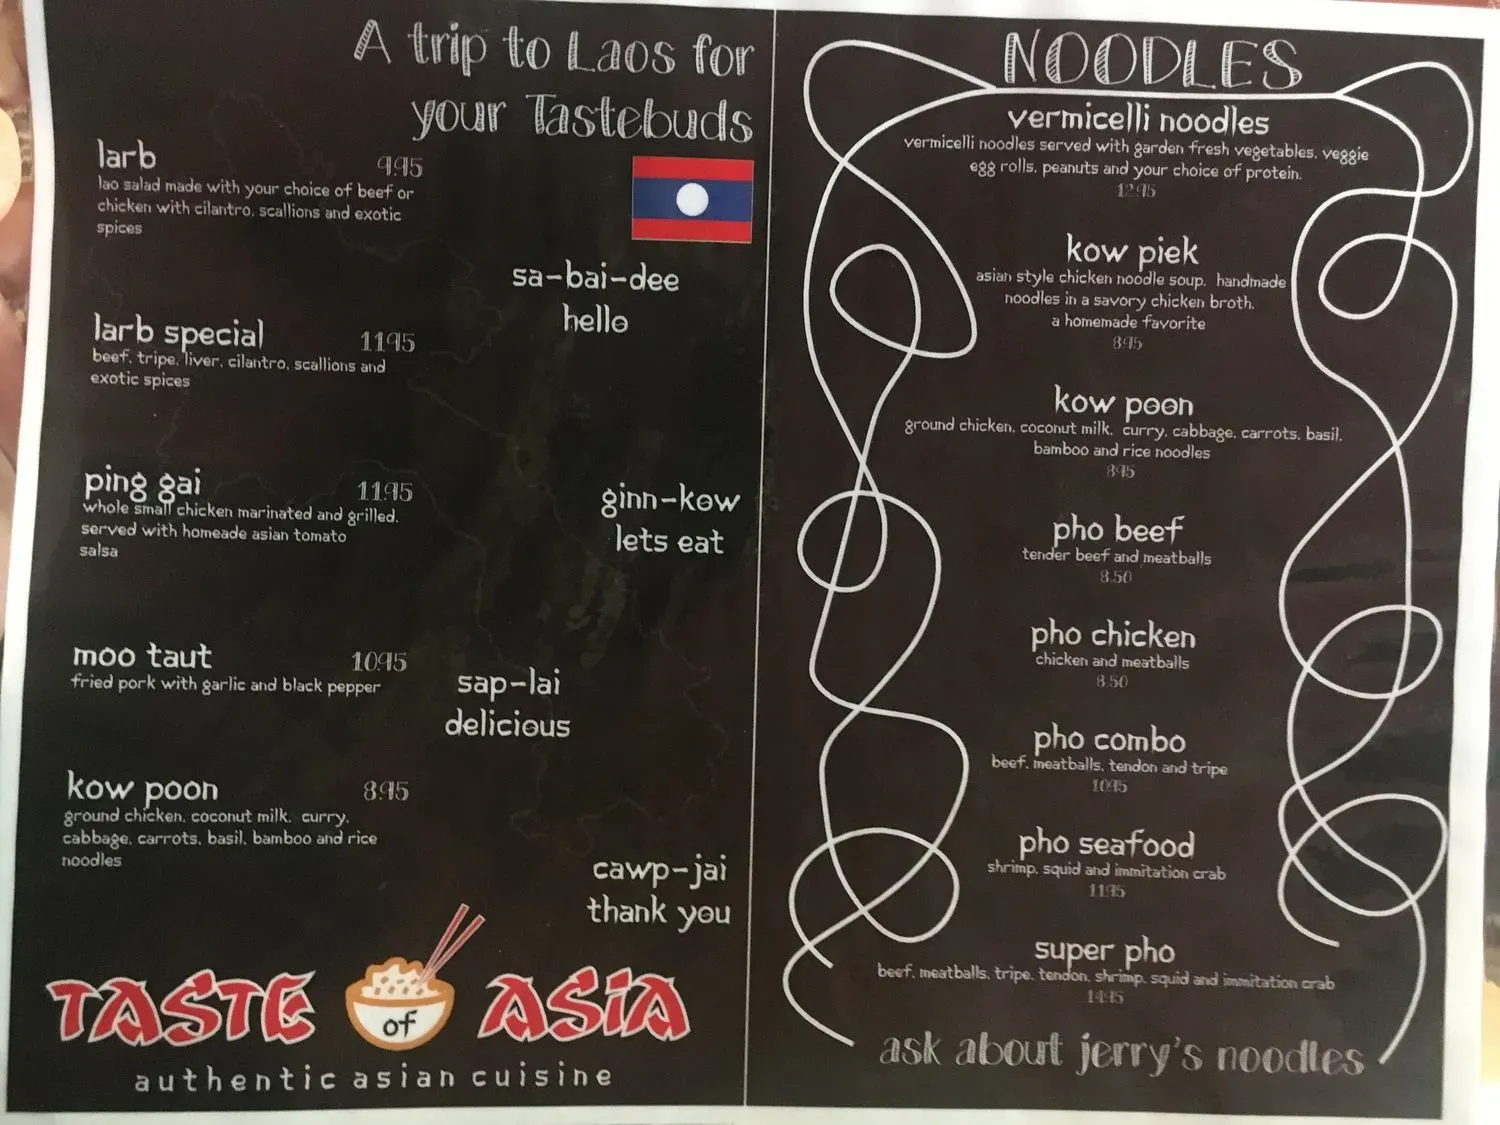 A trip to Laos for
your Tastebuds
larb 9.95
lao salad made with your choice of beef or
chicken with cilantro, scallions and exotic
spices
sa-bai-dee
hello
larb special 11.95
beef, tripe, liver, cilantro, scallions and
exotic spices
ping gai 11.95
whole small chicken marinated and grilled.
served with homeade asian tomato
salsa
ginn-kow
lets eat
moo taut 10.95
fried pork with garlic and black pepper
sap-lai
delicious
kow poon 8.95
ground chicken, coconut milk, curry,
cabbage, carrots, basil, bamboo and rice
noodles
cawp-jai
thank you
TASTE of ASIA
authentic asian cuisine
NOODLES
vermicelli noodles
vermicelli noodles served with garden fresh vegetables, veggie
egg rolls, peanuts and your choice of protein.
12.95
kow piek
asian style chicken noodle soup, handmade
noodles in a savory chicken broth.
a homemade favorite
8.95
kow poon
ground chicken, coconut milk, curry, cabbage, carrots, basil,
bamboo and rice noodles
8.95
pho beef
tender beef and meatballs
8.50
pho chicken
chicken and meatballs
8.50
pho combo
beef, meatballs, tendon and tripe
10.95
pho seafood
shrimp, squid and immitation crab
11.95
super pho
beef, meatballs, tripe, tendon, shrimp, squid and immitation crab
14.95
ask about jerry's noodles